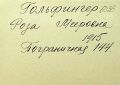 Гольфингер
Роза Мееровна
1915
Пограничная 144